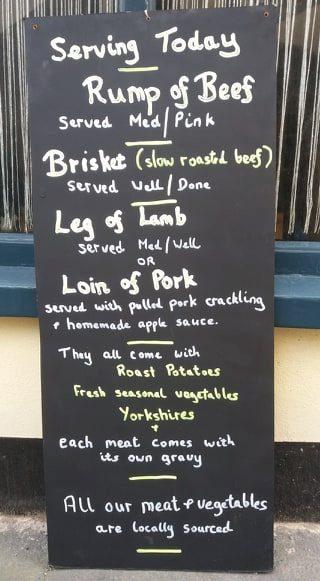 Serving Today
Rump of Beef
Served Med/Pink
Brisket (slow roasted beef)
served Well/Done
Leg of Lamb
served Med/Well
OR
Loin of Pork
served with pulled pork crackling
+ homemade apple sauce.
They all come with
Roast Potatoes
Fresh seasonal vegetables
Yorkshires
+
each meat comes with
its own gravy
All our meat + vegetables
are locally sourced